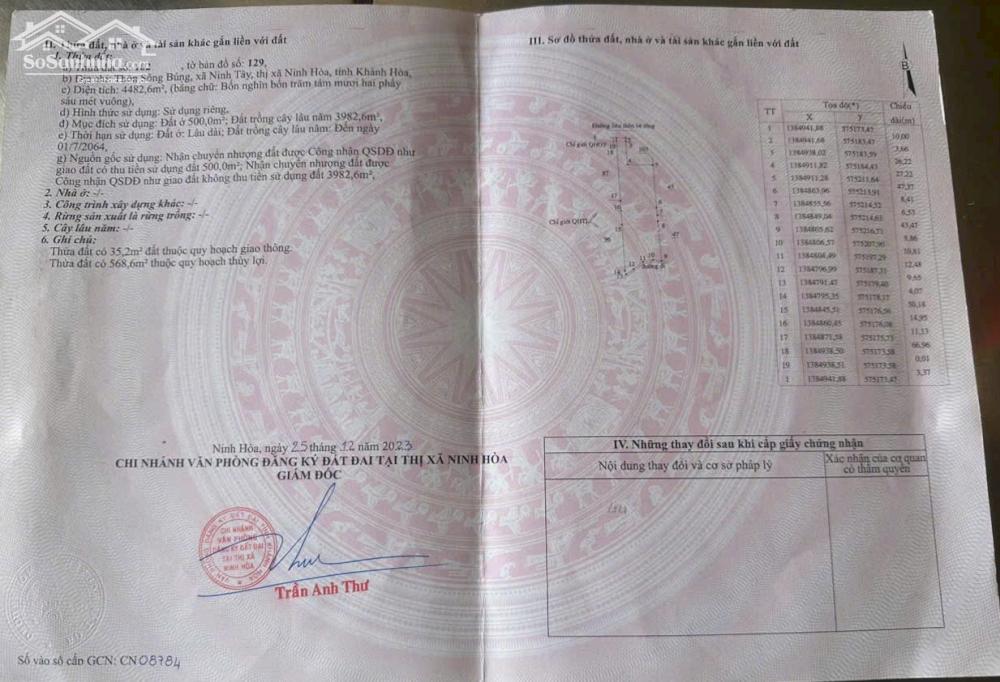 SoSanNha.com
II. Thửa đất, nhà ở và tài sản khác gắn liền với đất
1. Thửa đất:
a) Thửa đất số: , tờ bản đồ số: 129,
b) Địa chỉ: Thôn Sông Búng, xã Ninh Tây, thị xã Ninh Hòa, tỉnh Khánh Hòa,
c) Diện tích: 4482,6m², (bằng chữ: Bốn nghìn bốn trăm tám mươi hai phẩy
sáu mét vuông),
d) Hình thức sử dụng: Sử dụng riêng,
đ) Mục đích sử dụng: Đất ở 500,0m²; Đất trồng cây lâu năm 3982,6m²,
e) Thời hạn sử dụng: Đất ở: Lâu dài; Đất trồng cây lâu năm: Đến ngày
01/7/2064,
g) Nguồn gốc sử dụng: Nhận chuyển nhượng đất được Công nhận QSDĐ như
giao đất có thu tiền sử dụng đất 500,0m²; Nhận chuyển nhượng đất được
Công nhận QSDĐ như giao đất không thu tiền sử dụng đất 3982,6m²,
2. Nhà ở: -/-
3. Công trình xây dựng khác: -/-
4. Rừng sản xuất là rừng trồng: -/-
5. Cây lâu năm: -/-
6. Ghi chú:
Thửa đất có 35,2m² đất thuộc quy hoạch giao thông.
Thửa đất có 568,6m² thuộc quy hoạch thủy lợi.
Ninh Hòa, ngày 25 tháng 12 năm 2023
CHI NHÁNH VĂN PHÒNG ĐĂNG KÝ ĐẤT ĐAI TẠI THỊ XÃ NINH HÒA
GIÁM ĐỐC
CHI NHÁNH
VĂN PHÒNG
ĐĂNG KÝ ĐẤT ĐAI
TẠI THỊ XÃ
NINH HÒA
Trần Anh Thư
Số vào sổ cấp GCN: CN 08784
III. Sơ đồ thửa đất, nhà ở và tài sản khác gắn liền với đất
B
Đường liên thôn bê tông
Chỉ giới QHGT
Chỉ giới QHTL
đường đi
TT Tọa độ(*) Chiều
X Y dài(m)
1 1384941,88 575173,47
10,00
2 1384941,68 575183,47
3,66
3 1384938,02 575183,59
26,22
4 1384911,82 575184,43
27,22
5 1384911,28 575211,64
47,37
6 1384863,96 575213,91
8,41
7 1384855,56 575214,52
6,53
8 1384849,04 575214,63
43,47
9 1384805,62 575216,71
8,86
10 1384806,57 575207,90
10,81
11 1384804,49 575197,29
12,48
12 1384796,99 575187,31
9,65
13 1384791,47 575179,40
4,07
14 1384795,35 575178,17
50,18
15 1384845,51 575176,56
14,95
16 1384860,45 575176,08
11,13
17 1384871,58 575175,73
66,96
18 1384938,50 575173,58
0,01
19 1384938,51 575173,58
3,37
1 1384941,88 575173,47
IV. Những thay đổi sau khi cấp giấy chứng nhận
Nội dung thay đổi và cơ sở pháp lý
Xác nhận của cơ quan
có thẩm quyền